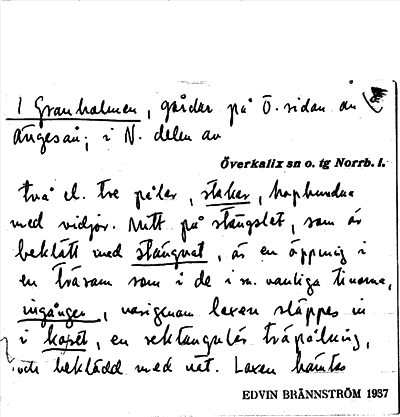 I Granholmen, gårdar på Ö. sidan ån
Ängesån; i N. delen av
Överkalix sn o. tg Norrb. l.
två el. tre pålar, stakar, hopbundna
med vidjor. Mitt på stängslet, som är
beklätt med stängnat, är en öppning i
en träram som i de i m. vanliga tinorna,
ingången, varigenom laxen släppes in
i kaset, en rektangulär träpålning,
och beklädd med nät. Laxen hämtas
EDVIN BRÄNNSTRÖM 1937